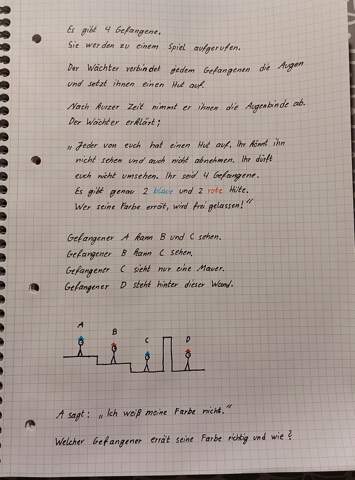 Es gibt 4 Gefangene.
Sie werden zu einem Spiel aufgerufen.
Der Wächter verbindet jedem Gefangenen die Augen
und setzt ihnen einen Hut auf.
Nach kurzer Zeit nimmt er ihnen die Augenbinde ab.
Der Wächter erklärt:
„Jeder von euch hat einen Hut auf. Ihr könnt ihn
nicht sehen und auch nicht abnehmen. Ihr dürft
euch nicht umsehen. Ihr seid 4 Gefangene.
Es gibt genau 2 blaue und 2 rote Hüte.
Wer seine Farbe errät, wird frei gelassen!“
Gefangener A kann B und C sehen.
Gefangener B kann C sehen.
Gefangener C sieht nur eine Mauer.
Gefangener D steht hinter dieser Wand.
A
B
C
D
A sagt: „Ich weiß meine Farbe nicht.“
Welcher Gefangener errät seine Farbe richtig und wie?